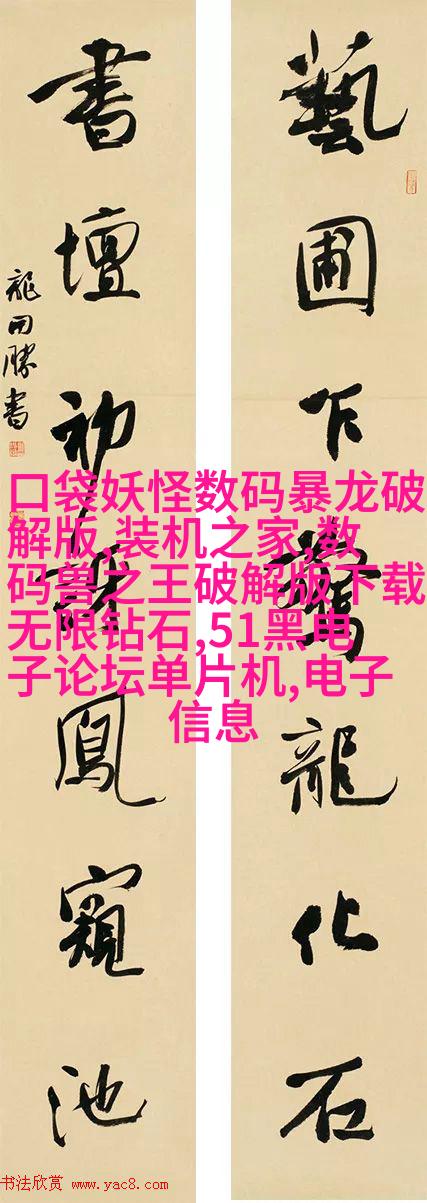 藝圃乍驚龍化石
書壇初鳳窺池
龍開勝書
口袋妖怪数码暴龙破
解版,装机之家,数
码兽之王破解版下载
无限钻石,51黑电
子论坛单片机,电子
信息
书法欣赏 www.yac8.com